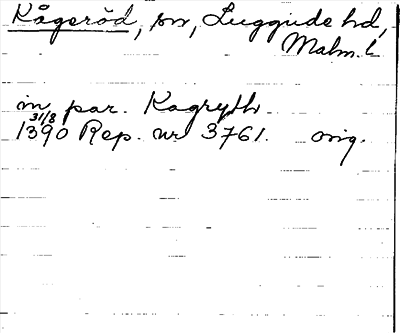 Kågeröd, sn, Luggude hd,
Malm. l.
in par. Kagryth
31/8
1390 Rep. nr 3761. orig.